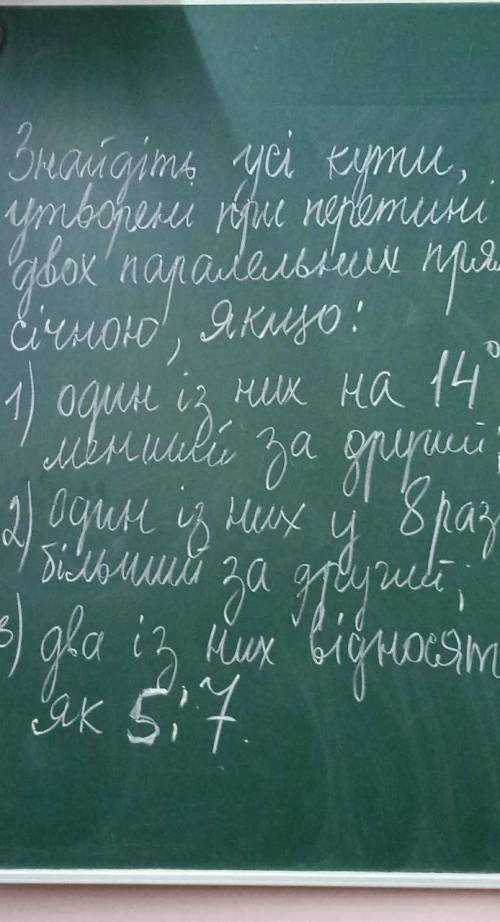 Знайдіть усі кути,
утворені при перетині
двох паралельних прям
січною, якщо:
1) один із них на 14°
менший за другий;
2) один із них у 8 раз
більший за другий;
3) два із них відносят
як 5:7.